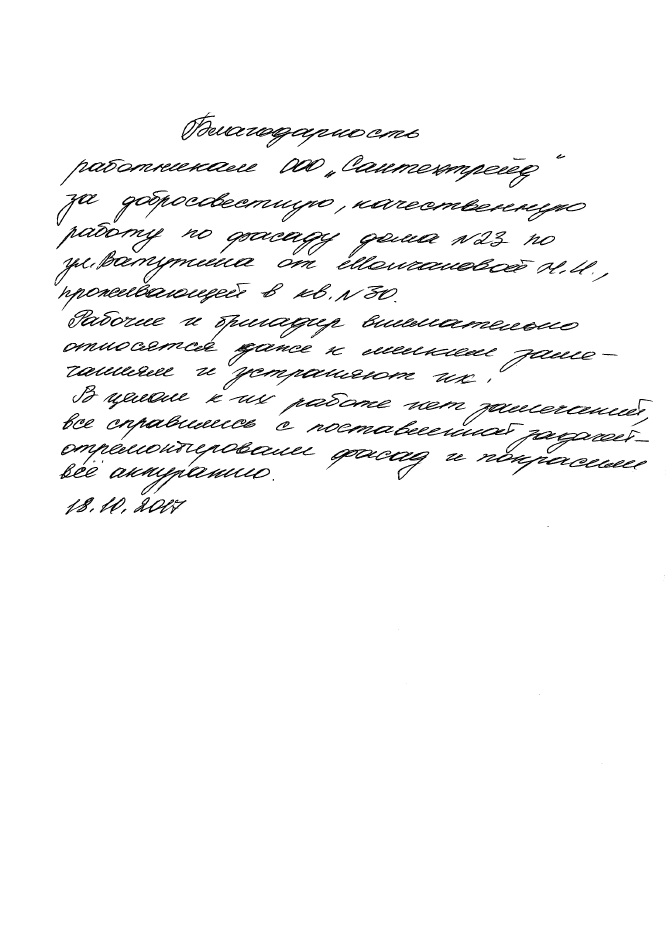 Благодарность
работникам ООО „Сантехтрейд"
за добросовестную, качественную
работу по фасаду дома №23 по
ул. Ватутина от Молчановой Н.И.,
проживающей в кв. №30.
Рабочие и бригадир внимательно
относятся даже к мелким заме-
чаниям и устраняют их.
В целом к их работе нет замечаний,
все справились с поставленной задачей-
отремонтировали фасад и покрасили
всё аккуратно.
18.10.2017